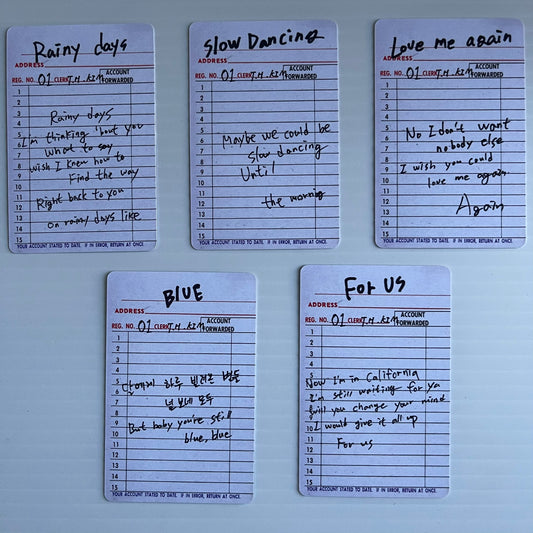 Rainy days
ADDRESS
REG. NO. 01 CLERK T.H. KIM ACCOUNT FORWARDED
1
2
3
4 Rainy days
5
6 I'm thinking 'bout you
7 What to say
8 wish I knew how to
9 Find the way
10
11 Right back to you
12
13 on rainy days like
14
15
YOUR ACCOUNT STATED TO DATE. IF IN ERROR, RETURN AT ONCE.
Slow Dancing
ADDRESS
REG. NO. 01 CLERK T.H. KIM ACCOUNT FORWARDED
1
2
3
4
5
6 Maybe we could be
7 slow dancing
8
9 Until
10
11 the morning
12
13
14
15
YOUR ACCOUNT STATED TO DATE. IF IN ERROR, RETURN AT ONCE.
Love me again
ADDRESS
REG. NO. 01 CLERK T.H. KIM ACCOUNT FORWARDED
1
2
3
4
5 No I don't want
6
7 nobody else
8 I wish you could
9 love me again
10
11
12 Again
13
14
15
YOUR ACCOUNT STATED TO DATE. IF IN ERROR, RETURN AT ONCE.
BLUE
ADDRESS
REG. NO. 01 CLERK T.H. KIM ACCOUNT FORWARDED
1
2
3
4
5 달에게 하루 빌려온 별들
6
7 널보네 모두
8
9 But baby you're still
10 blue, blue
11
12
13
14
15
YOUR ACCOUNT STATED TO DATE. IF IN ERROR, RETURN AT ONCE.
For us
ADDRESS
REG. NO. 01 CLERK T.H. KIM ACCOUNT FORWARDED
1
2
3
4
5
6 Now I'm in California
7 I'm still waiting for ya
8 Will you change your mind
9
10 I would give it all up
11 For us
12
13
14
15
YOUR ACCOUNT STATED TO DATE. IF IN ERROR, RETURN AT ONCE.